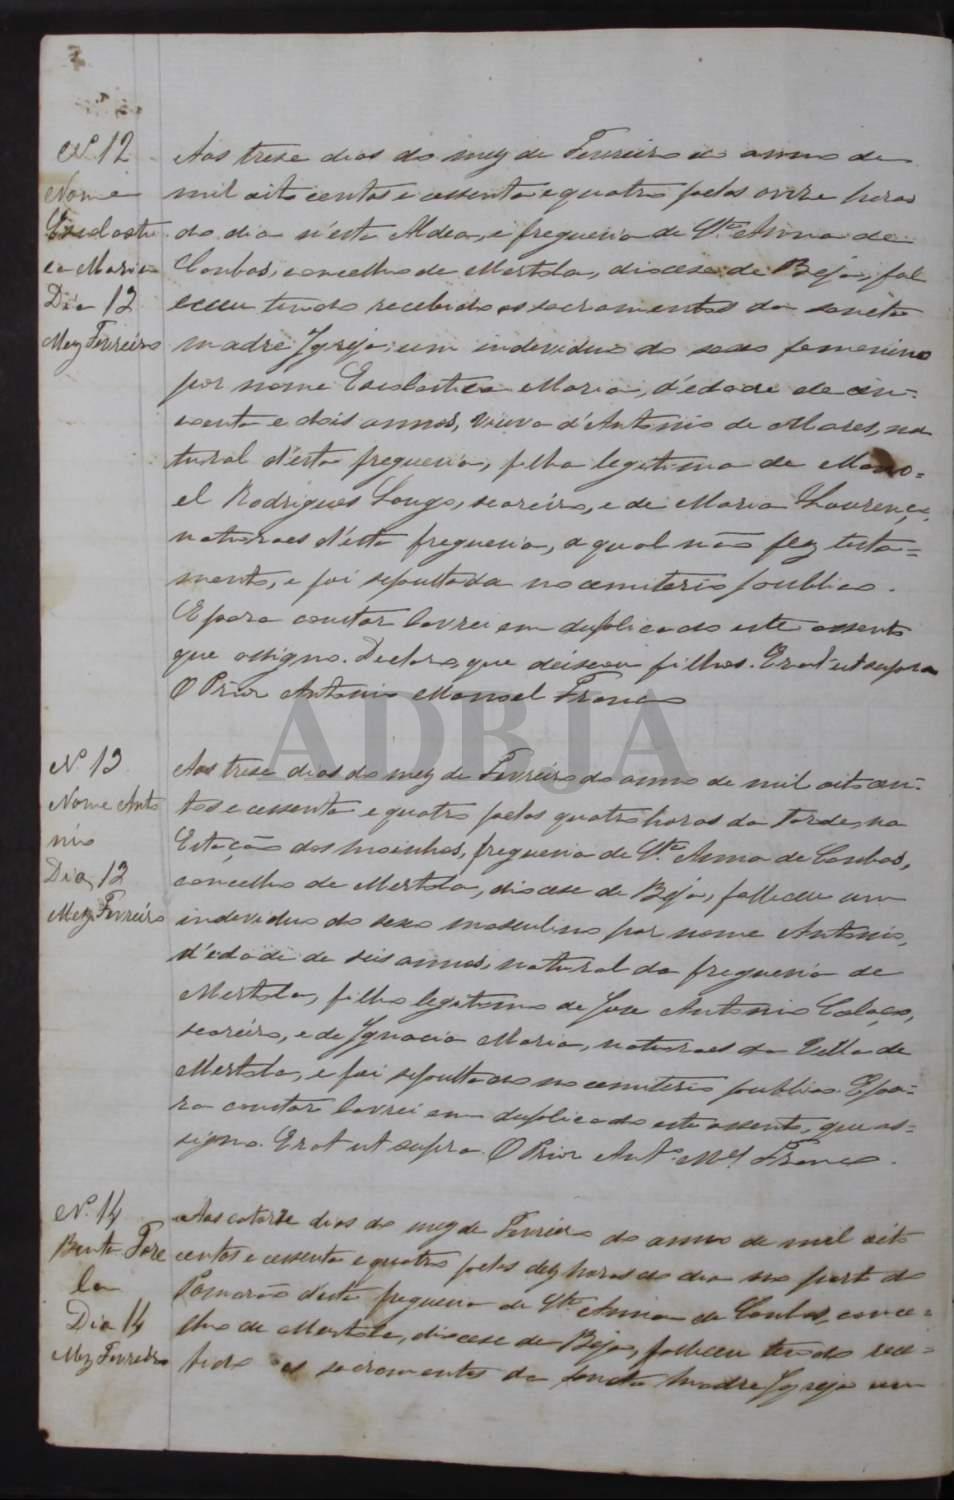 Nº 12
Nome
Escolasti
ca Maria
Dia 13
Mez Fevreiro
Aos trese dias do mez de Fevreiro do anno de
mil oito centos e cessenta e quatro pelas onze horas
do dia n'esta Aldea, e freguesia de Stª Anna de
Cambas, concelho de Mertola, diocese de Beja, fal
eceu tendo recebido os sacramentos da sancta
madre Igreja, um individuo do sexo femenino
por nome Escolastica Maria, d'edade de cin=
coenta e dois annos, viuva d'Antonio de Mares, na
tural d'esta freguesia, filha legitima de Mano=
el Rodrigues Longo, seareiro, e de Maria Lourença,
naturaes d'esta freguesia, a qual não fez testa=
mento, e foi sepultada no cemiterio publico.
E para constar lavrei em duplicado este assento
que assigno. Declaro que deixou filhos. Erat ut supra
O Prior Antonio Manoel Franco
ADBJA
Nº 13
Nome Anto
nio
Dia 13
Mez Fevreiro
Aos trese dias do mez de Fevreiro do anno de mil oito cen=
tos e cessenta e quatro pelas quatro horas da tarde, na
Estação dos Moinhos, freguesia de Stª Anna de Cambas,
concelho de Mertola, diocese de Beja, falleceu um
individuo do sexo masculino por nome Antonio,
d'edade de seis annos, natural da freguesia de
Mertola, filho legitimo de Jose Antonio Colaço,
seareiro, e de Ignacia Maria, naturaes da Villa de
Mertola, e foi sepultado no cemiterio publico. E pa=
ra constar lavrei em duplicado este assento, que as=
signo. Erat ut supra. O Prior Antº Mel Franco.
Nº 14
Bento
Dia 14
Mez Fevreiro
Aos catorze dias do mez de Fevreiro do anno de mil oito
centos e cessenta e quatro pelas dez horas do dia no porto do
Pomarão desta freguesia de Stª Anna de Cambas, conce=
lho de Mertola, diocese de Beja, falleceu tendo rece=
bido os sacramentos da sancta Madre Igreja um